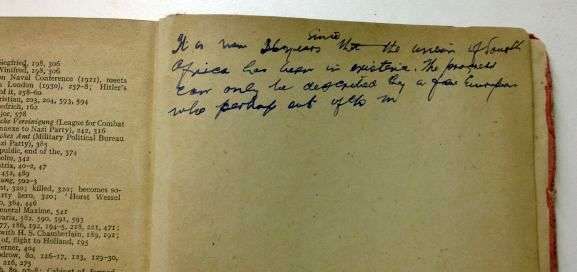 Siegfried, 198, 306
Winifred, 198, 306
on Naval Conference (1921), meets
n London (1930), 257-8; Hitler's
of it, 258-60
ristian, 203, 204, 593, 594
edrich, 162
jor, 578
che Vereinigung (League for Combat
nnexe to Nazi Party), 242, 316
sches Amt (Military Political Bureau
zi Party), 385
public, end of the, 374
olm, 342
trix, 40-2, 47
452, 489
ang, 502-3
st, 320; killed, 320; becomes so-
arty hero, 320; 'Horst Wessel
0, 364, 446
General Maxime, 541
varia, 582, 590, 591, 593
77, 186, 192, 194-5, 218, 223, 471;
with H. S. Chamberlain, 189, 191;
of, flight to Holland, 195
erner, 404
odrow, 80, 126-27, 123, 129-30,
since
It is now 36 years the the union of South
Africa has been in existence. The progress
can only be described by a few European
who perhaps out of to in